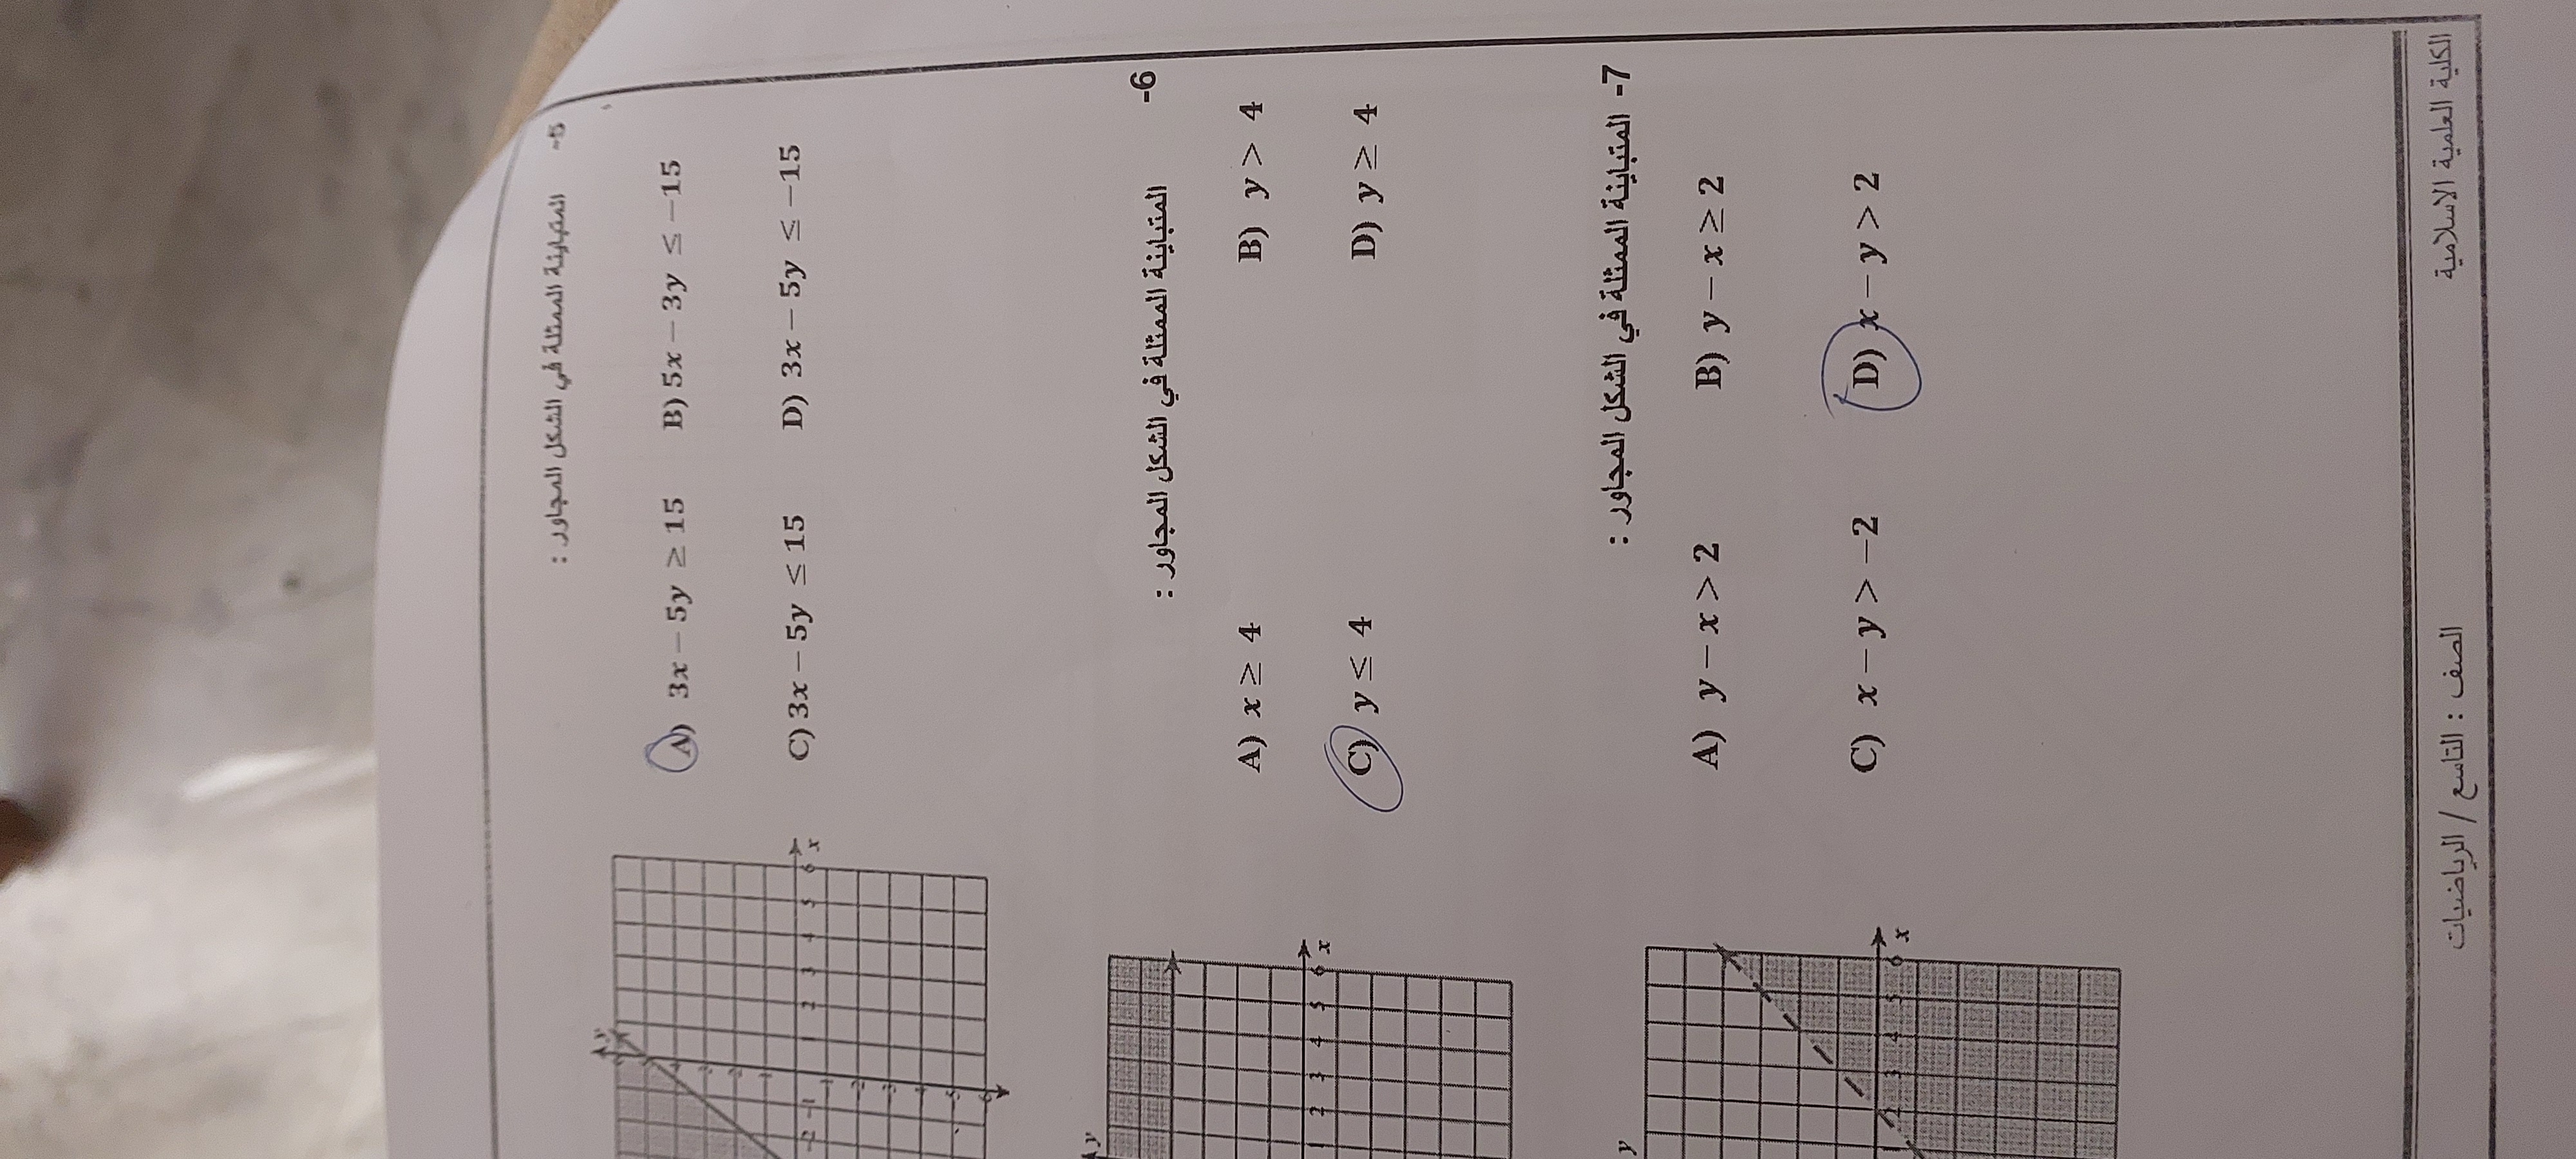 5- المتباينة الممثلة في الشكل المجاور :
A) 3x − 5y ≥ 15 B) 5x − 3y ≤ −15
C) 3x − 5y ≤ 15 D) 3x − 5y ≤ −15
6- المتباينة الممثلة في الشكل المجاور :
A) x ≥ 4 B) y > 4
C) y ≤ 4 D) y ≥ 4
7- المتباينة الممثلة في الشكل المجاور :
A) y − x > 2 B) y − x ≥ 2
C) x − y > −2 D) x − y > 2
الكلية العلمية الاسلامية
الصف : التاسع / الرياضيات